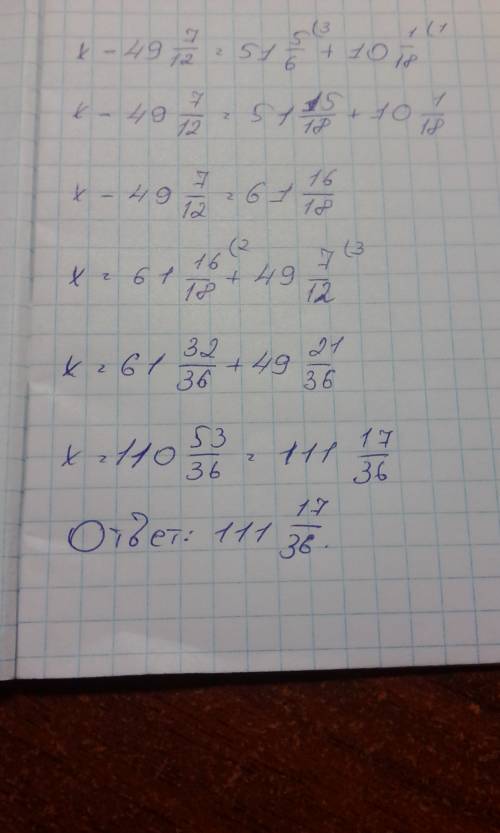 x - 49 7/12 = 51 5/6 (3 + 10 1/18 (1
x - 49 7/12 = 51 15/18 + 10 1/18
x - 49 7/12 = 61 16/18
x = 61 16/18 (2 + 49 7/12 (3
x = 61 32/36 + 49 21/36
x = 110 53/36 = 111 17/36
Ответ: 111 17/36.